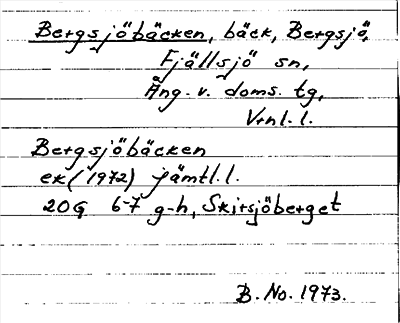 Bergsjöbäcken, bäck, Bergsjö,
Fjällsjö sn,
Ång. v. doms. tg,
Vrnl. l.
Bergsjöbäcken
ek (1972) Jämtl. l.
20G 6-7 g-h, Skirsjöberget
B. No. 1973.